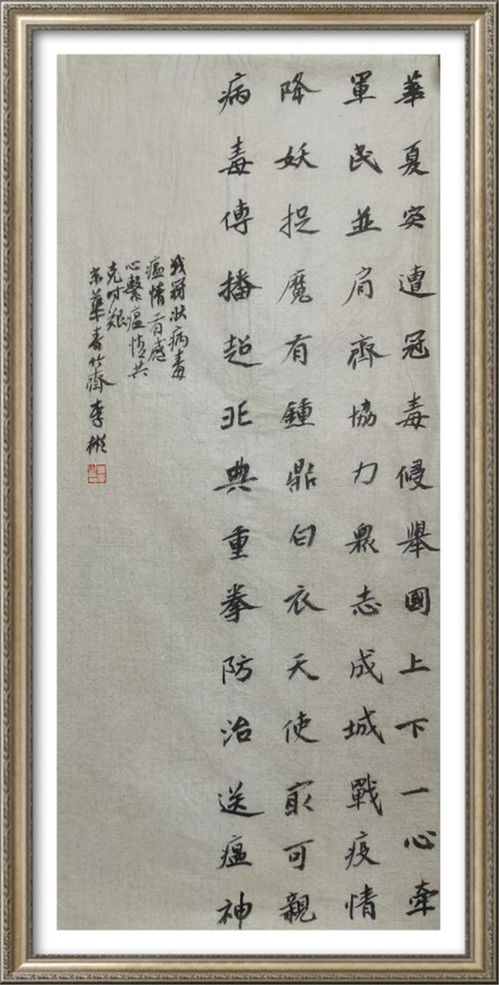 華夏突遭冠毒侵舉國上下一心牽
軍民並肩齊協力眾志成城戰疫情
降妖捉魔有鍾鼎白衣天使最可親
病毒傳播超非典重拳防治送瘟神
戰冠狀病毒
瘟情有感
心繫瘟情共
克時艱
京華
李彬